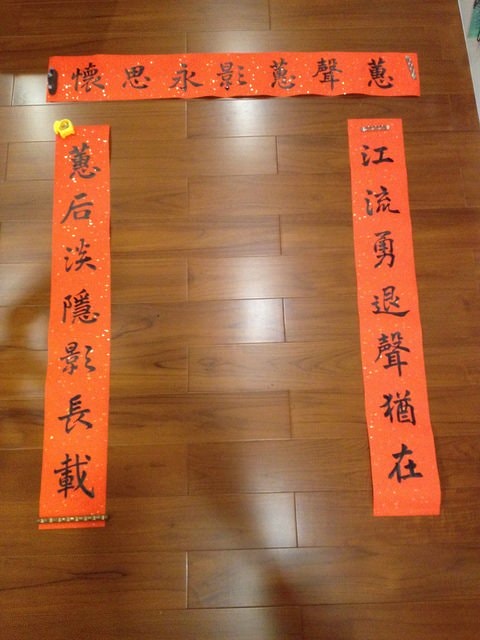 蕙聲蕙影永思懷
江流勇退聲猶在
蕙后淡隱影長載